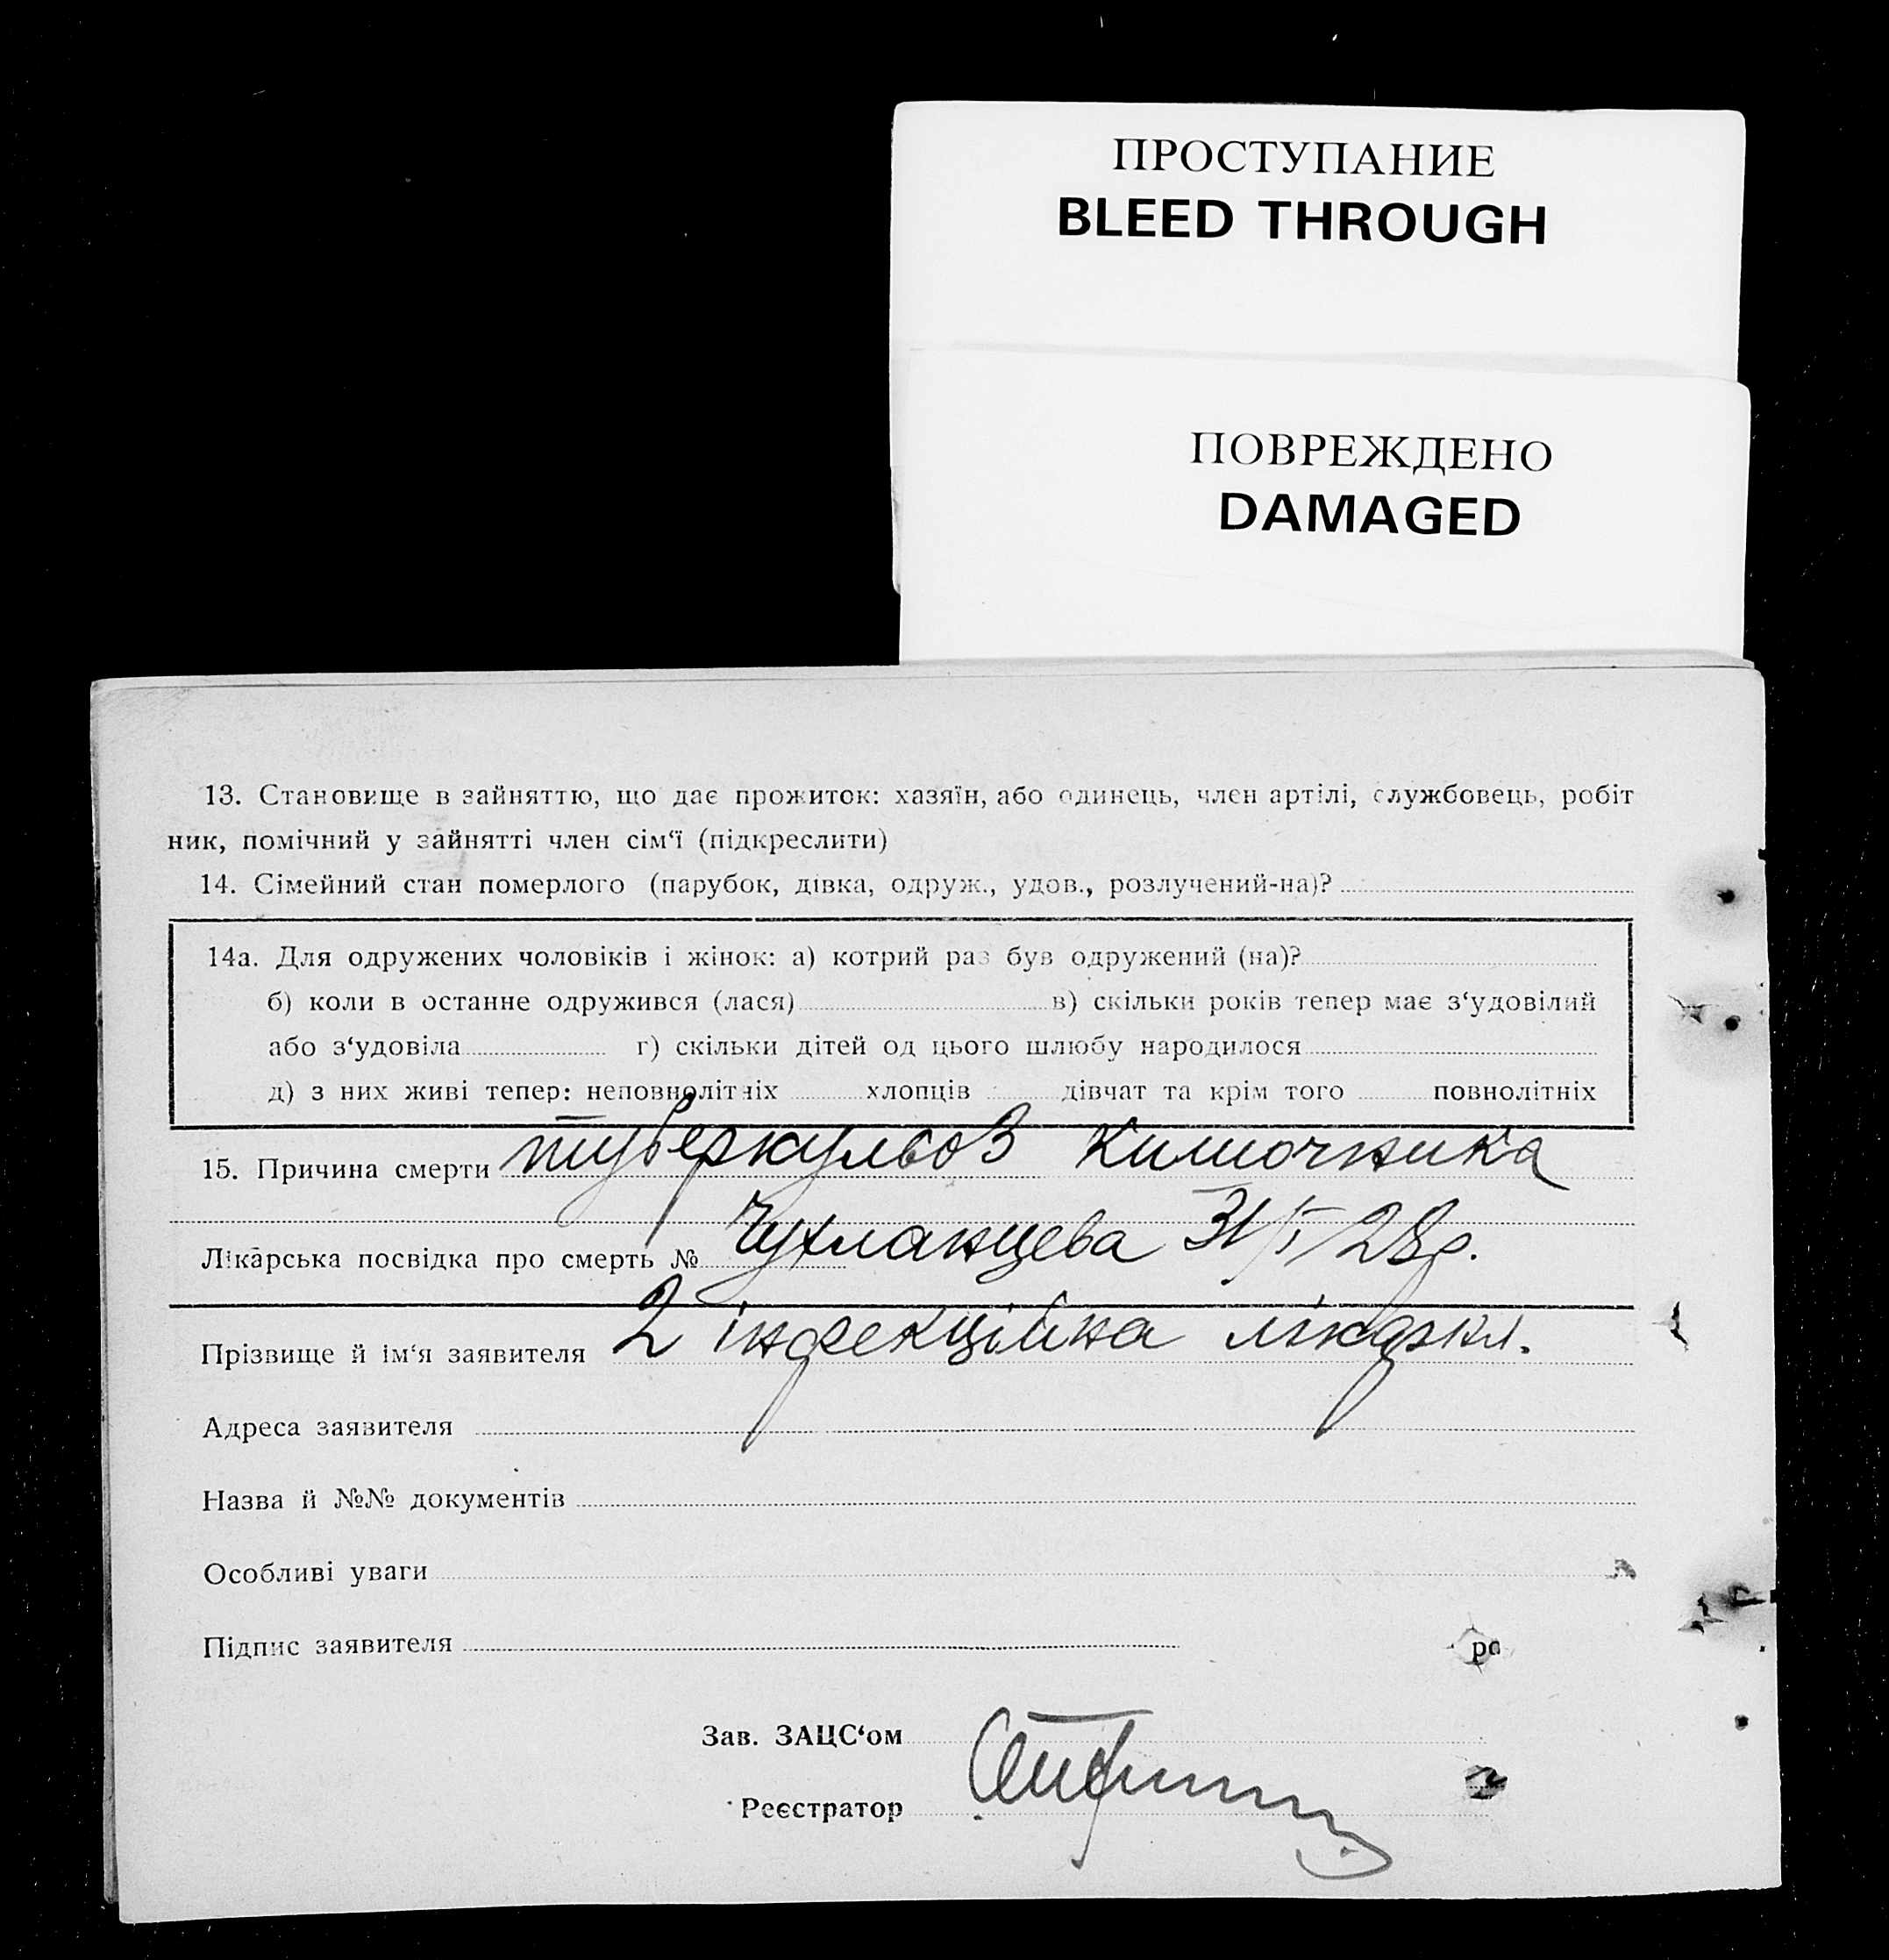 ПРОСТУПАНИЕ
BLEED THROUGH
ПОВРЕЖДЕНО
DAMAGED
13. Становище в зайняттю, що дає прожиток: хазяїн, або одинець, член артілі, службовець, робіт
ник, помічний у зайнятті член сім‘ї (підкреслити)
14. Сімейний стан померлого (парубок, дівка, одруж., удов., розлучений-на)?
14а. Для одружених чоловіків і жінок: а) котрий раз був одружений (на)?
б) коли в останне одружився (лася) в) скільки років тепер має з‘удовілий
або з‘удовіла г) скільки дітей од цього шлюбу народилося
д) з них живі тепер: неповнолітніх хлопців дівчат та крім того повнолітніх
15. Причина смерти туберкульоз кишочника
Лікарська посвідка про смерть № Чухланцева 31/I 28р.
Прізвище й ім‘я заявителя 2 інфекційна лікарня.
Адреса заявителя
Назва й №№ документів
Особливі уваги
Підпис заявителя
ро
Зав. ЗАЦС‘ом
Реєстратор